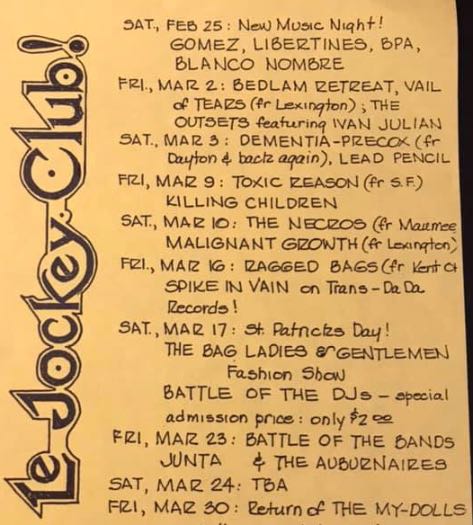 Le Jockey Club!
SAT., FEB 25: New Music Night!
GOMEZ, LIBERTINES, BPA,
BLANCO NOMBRE
FRI., MAR 2: BEDLAM RETREAT, VAIL
of TEARS (fr Lexington); THE
OUTSETS featuring IVAN JULIAN
SAT., MAR 3: DEMENTIA-PRECOX (fr
Dayton & back again), LEAD PENCIL
FRI, MAR 9: TOXIC REASON (fr S.F.)
KILLING CHILDREN
SAT., MAR 10: THE NECROS (fr Maumee
MALIGNANT GROWTH (fr Lexington)
FRI., MAR 16: RAGGED BAGS (fr Kent O
SPIKE IN VAIN on Trans-Da Da
Records!
SAT., MAR 17: St. Patricks Day!
THE BAG LADIES & GENTLEMEN
Fashion Show
BATTLE OF THE DJs - special
admission price: only $2 00
FRI, MAR 23: BATTLE OF THE BANDS
JUNTA & THE AUBURNAIRES
SAT, MAR 24: TBA
FRI, MAR 30: Return of THE MY-DOLLS